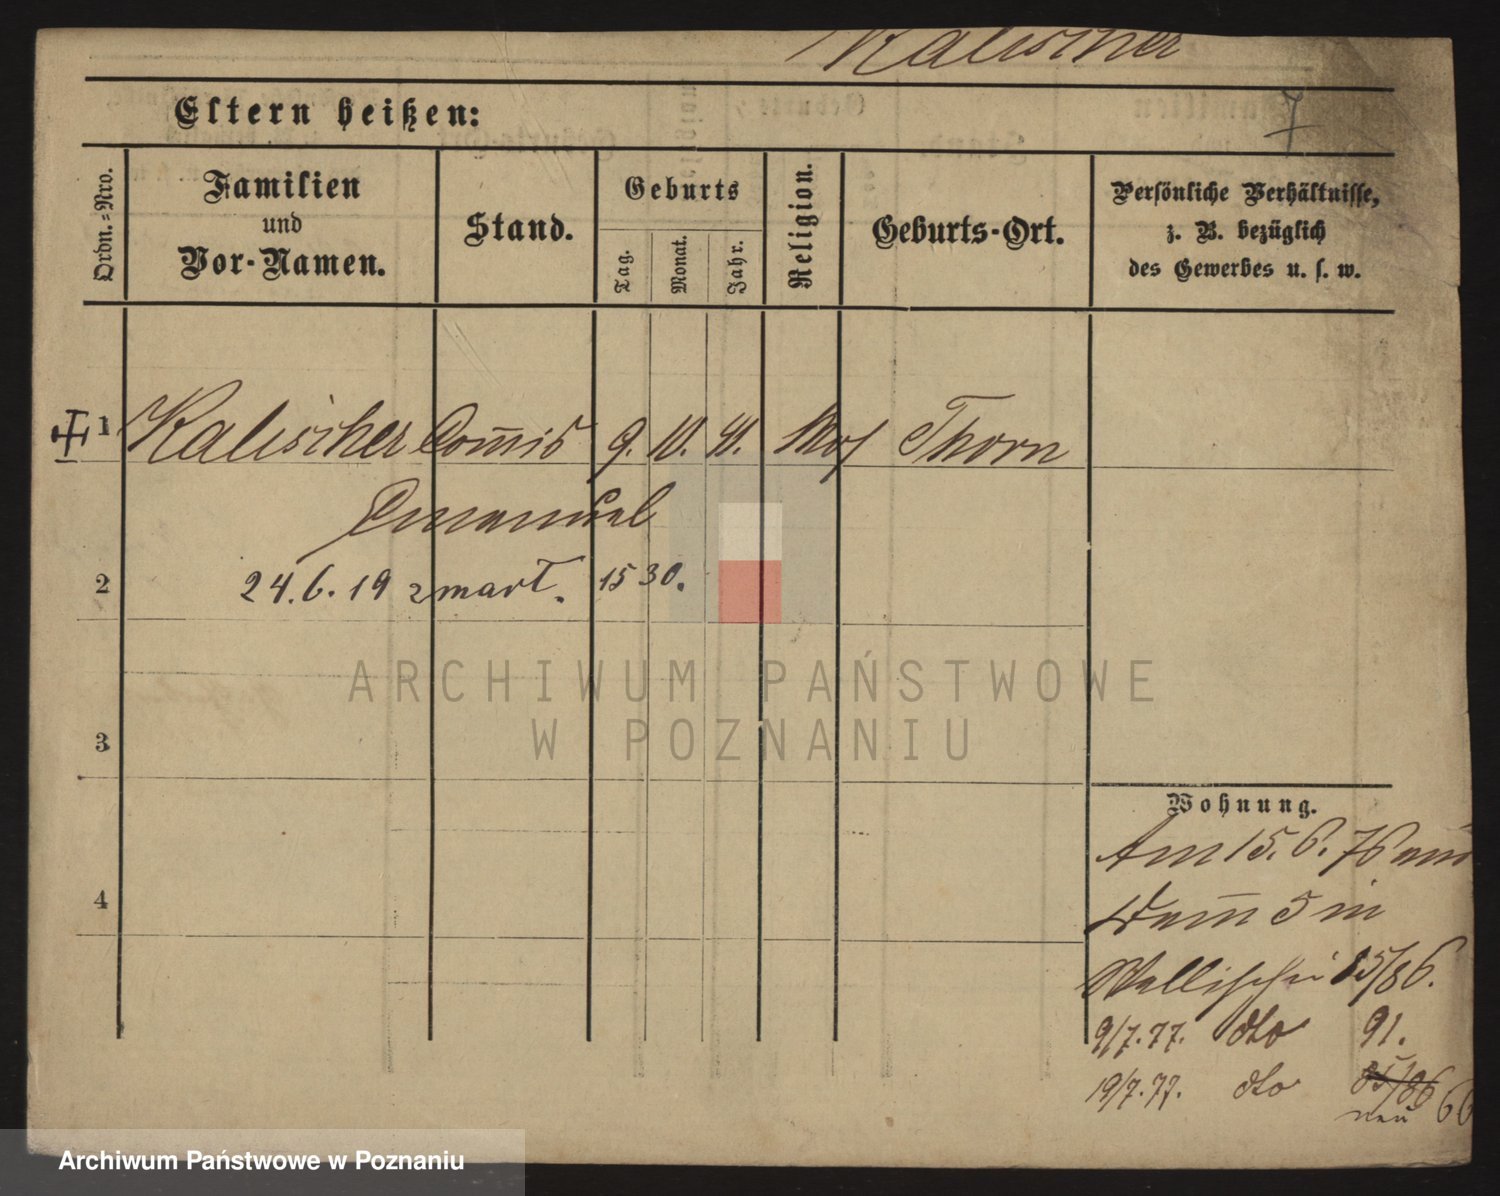 Kalischer
Eltern heißen:
Ordn.=Nro.
Familien
und
Vor-Namen.
Stand.
Geburts
Tag.
Monat.
Jahr.
Religion.
Geburts-Ort.
Persönliche Verhältnisse,
z. B. bezüglich
des Gewerbes u. s. w.
1 Kalischer Com̅is 9. 10. 41. Mos Thorn
Emanuel
2 24. 6. 19 zmarł. 15 30.
3
4
ARCHIWUM PAŃSTWOWE
W POZNANIU
Wohnung.
Am 15. 6. 76 von
Dam̅ 5 in
Wallischei 85/86.
9/7. 77. dto 91.
19/7. 77. dto 85/86
neu 66
Archiwum Państwowe w Poznaniu